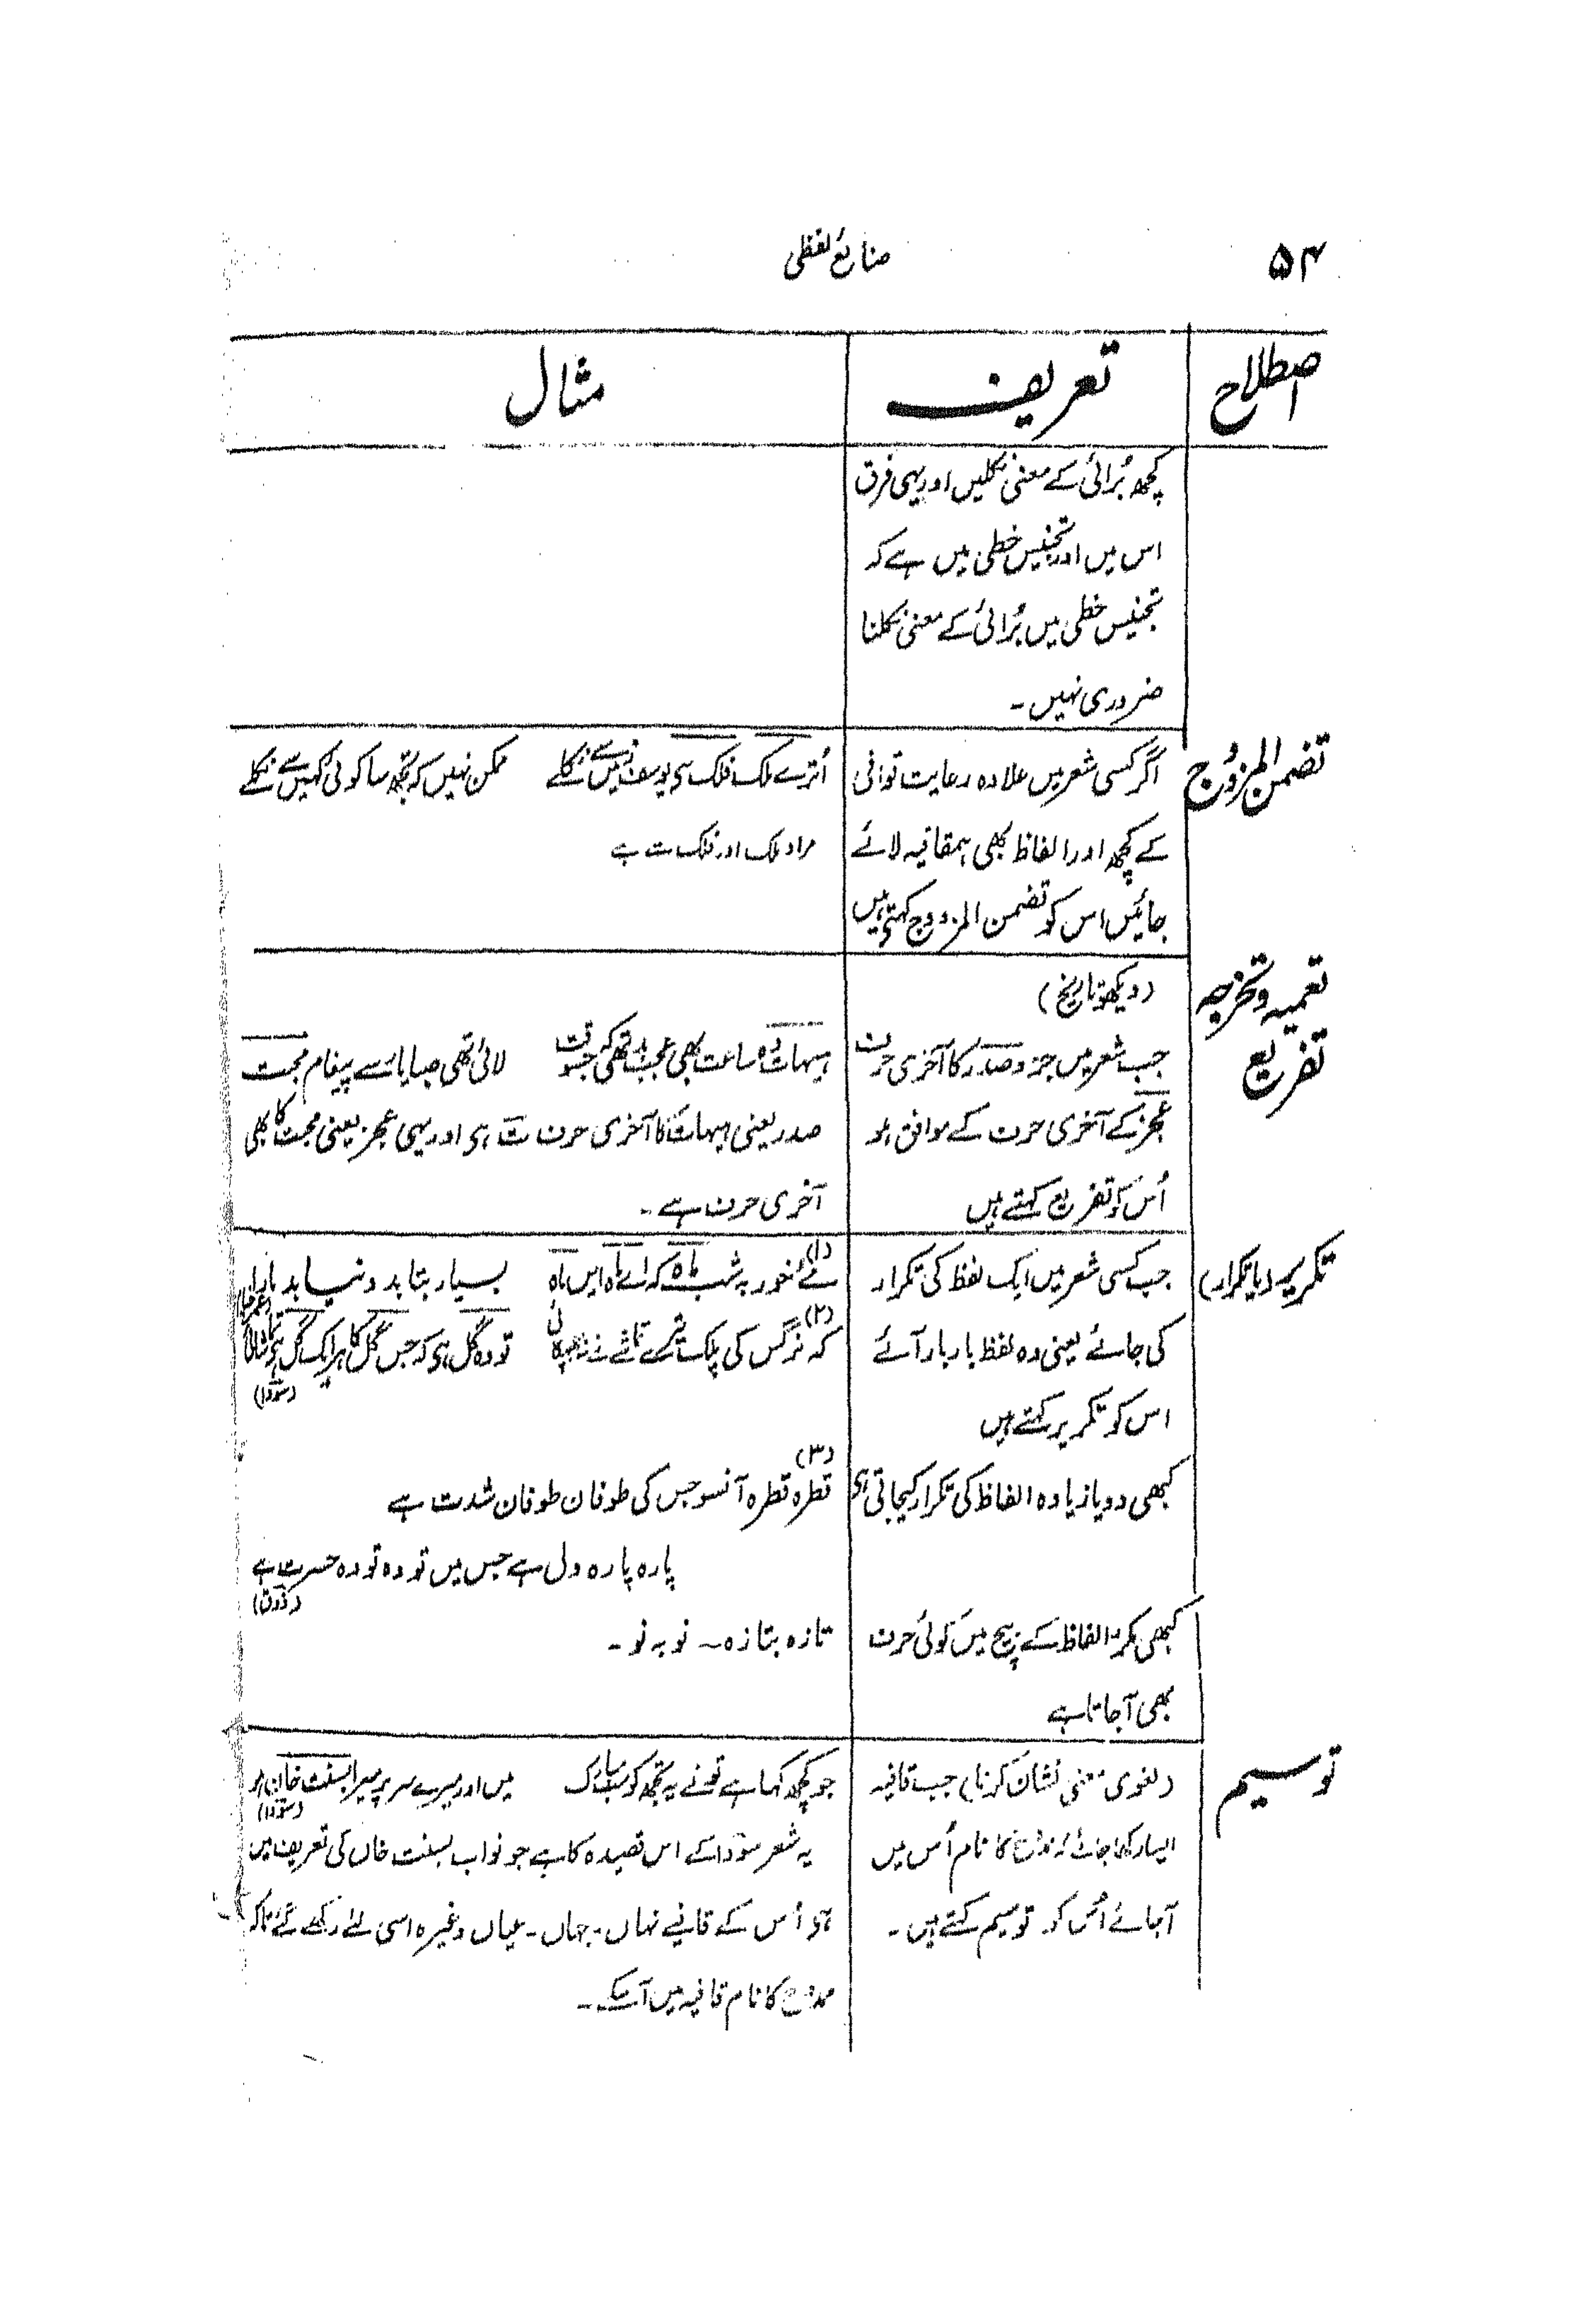 ۵۴
صنائع لفظی
اصطلاح تعریف مثال
کچھ بُرائی کے معنی نکلیں اور یہی فرق
اس میں اور تجنیس خطی میں ہے کہ
تجنیس خطی میں بُرائی کے معنی نکلنا
ضروری نہیں ۔
تضمن المزدوج
اگر کسی شعر میں علاوہ رعایت قوافی
کے کچھ اور الفاظ بھی ہمقافیہ لائے
جائیں اس کو تضمن المزدوج کہتے ہیں
اُترے ملک فلک سی یوسف زمیں سے نکلے ممکن نہیں کہ تجھ سا کوئی کہیں سے نکلے
مراد ملک اور فلک سے ہے
تعمیہ و تخرجہ
(دیکھو تاریخ)
تفریع
جب شعر میں جزو صدر کا آخری حرف
عجز کے آخری حرف کے موافق ہو
اُس کو تفریع کہتے ہیں
ہیہات وہ ساعت بھی عجب بد تھی کہ جسوقت لائی تھی صبا یار سے پیغام محبت
صدر یعنی ہیہات کا آخری حرف ت ہی اور یہی عجز یعنی محبت کا بھی
آخری حرف ہے ۔
تکریر (یا تکرار)
جب کسی شعر میں ایک لفظ کی تکرار
کی جائے یعنی وہ لفظ بار بار آئے
اس کو تکریر کہتے ہیں
(۱)
مئے خور بہ شب ماہ کہ اے ماہ ایں ماہ بسیار بتابد و نیابد مارا
(۲)
کہ نرگس کی پلک تیرے تماشے نے تو وہ گل ہی کہ جس گل کا ہر ایک گل
(سودا)
کبھی دو یا زیادہ الفاظ کی تکرار کیجاتی ہی
(۳)
قطرہ قطرہ آنسو جس کی طوفان طوفان شدت ہے
پارہ پارہ دل ہے جس میں تودہ تودہ حسرت ہے
(ذوق)
کبھی مکرر الفاظ کے بیچ میں کوئی حرف
بھی آجاتا ہے
تازہ بتازہ ۔ نو بہ نو ۔
توسیم
(لغوی معنی نشان کرنا) جب قافیہ
ایسا رکھا جائے کہ ممدوح کا نام اُس میں
آجائے اُس کو توسیم کہتے ہیں ۔
جو کچھ کہا ہے تونے یہ تجھ کو سب مبارک میں اور میرے سر پر میرا بسنت خاں ہو
(سودا)
یہ شعر سودا کے اس قصیدہ کا ہے جو نواب بسنت خاں کی تعریف میں
ہو اُس کے قافیے نہاں ۔ جہاں ۔ عیاں وغیرہ اسی لئے رکھے گئے تاکہ
ممدوح کا نام قافیہ میں آسکے ۔